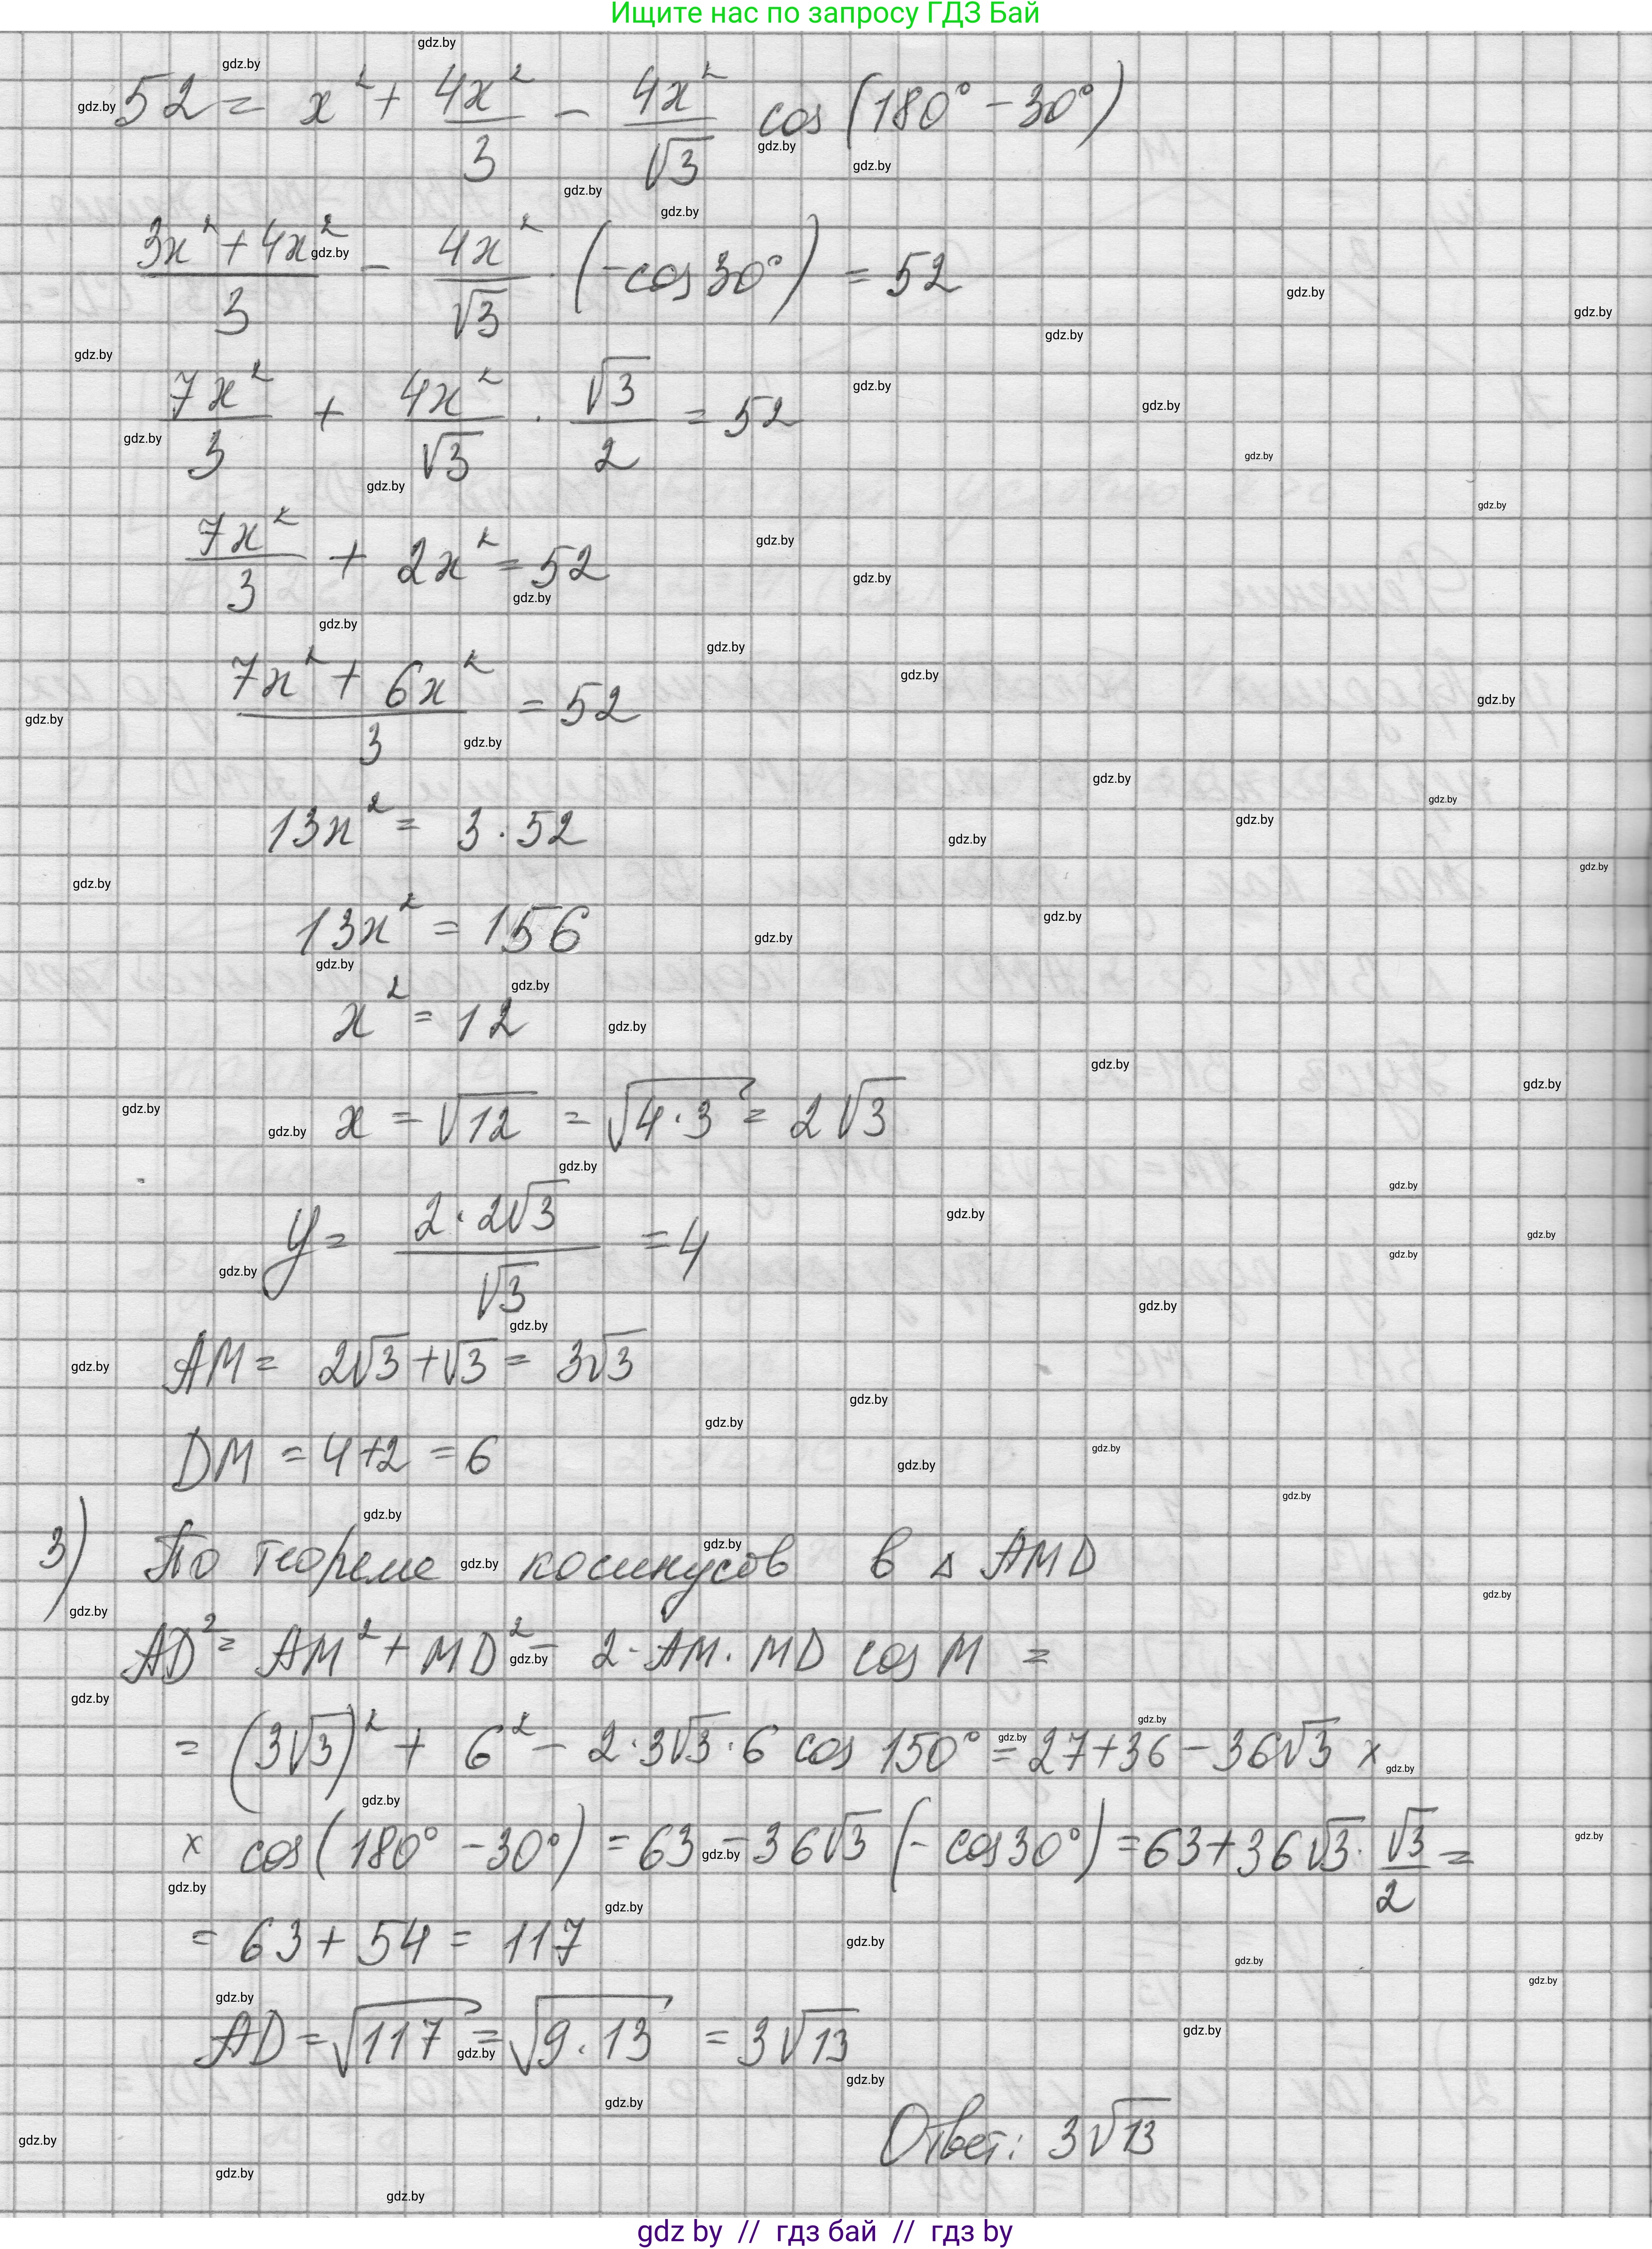 Ищите нас по запросу ГДЗ Бай
52 = x² + 4x²/3 − 4x²/√3 cos (180° − 30°)
(3x² + 4x²)/3 − 4x²/√3 · (−cos 30°) = 52
7x²/3 + 4x²/√3 · √3/2 = 52
7x²/3 + 2x² = 52
(7x² + 6x²)/3 = 52
13x² = 3 · 52
13x² = 156
x² = 12
x = √12 = √(4·3) = 2√3
y = (2·2√3)/√3 = 4
AM = 2√3 + √3 = 3√3
DM = 4+2 = 6
3) По теореме косинусов в △ AMD
AD² = AM² + MD² − 2·AM·MD cos M =
= (3√3)² + 6² − 2·3√3·6 cos 150° = 27+36 − 36√3 ×
× cos (180° − 30°) = 63 − 36√3 (− cos 30°) = 63 + 36√3 · √3/2 =
= 63 + 54 = 117
AD = √117 = √(9·13) = 3√13
Ответ: 3√13
gdz by // гдз бай // гдз by